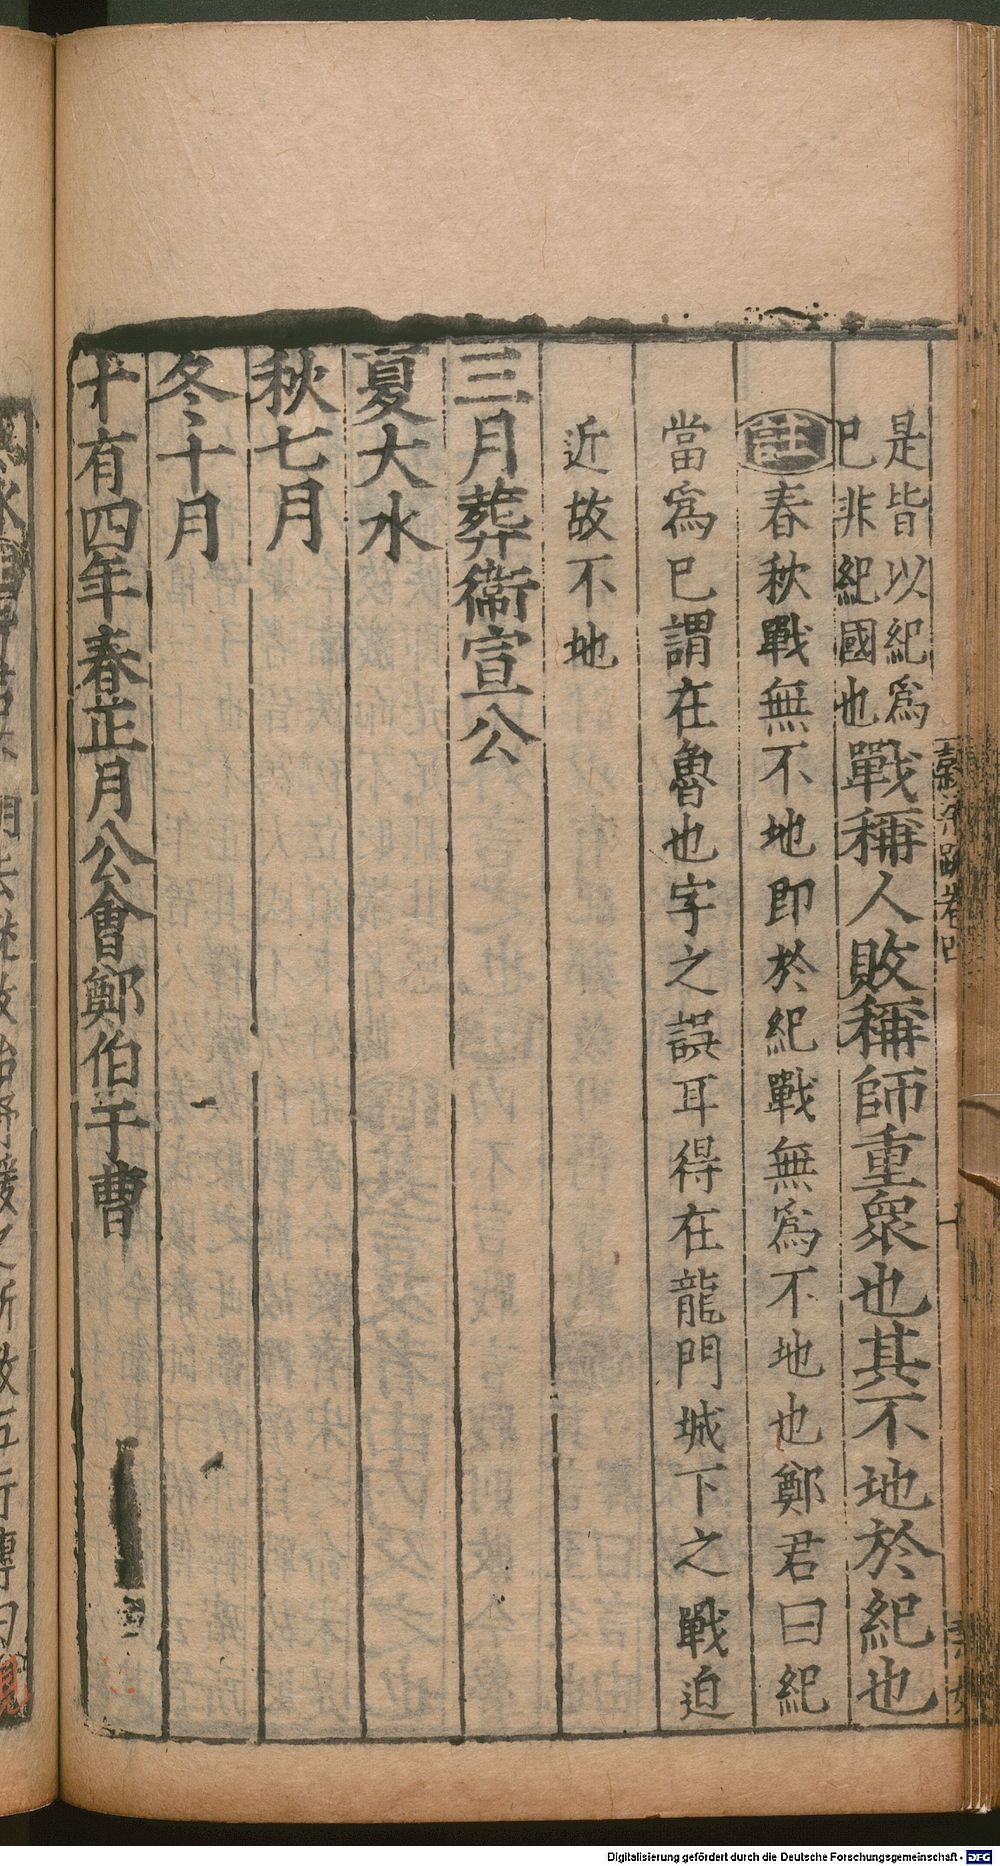 是皆以紀爲
巳非紀國也
戰稱人敗稱師重衆也其不地於紀也
注春秋戰無不地即於紀戰無爲不地也鄭君曰紀
當爲巳謂在魯也字之誤耳得在龍門城下之戰迫
近故不地
三月葬衞宣公
夏大水
秋七月
冬十月
十有四年春正月公會鄭伯于曹
Digitalisierung gefördert durch die Deutsche Forschungsgemeinschaft - DFG